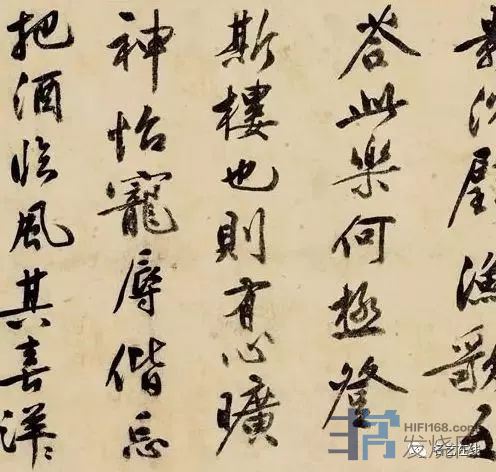 影沉璧漁歌互
答此樂何極登
斯樓也則有心曠
神怡寵辱偕忘
把酒臨風其喜洋〻
HIFI168.com
发烧